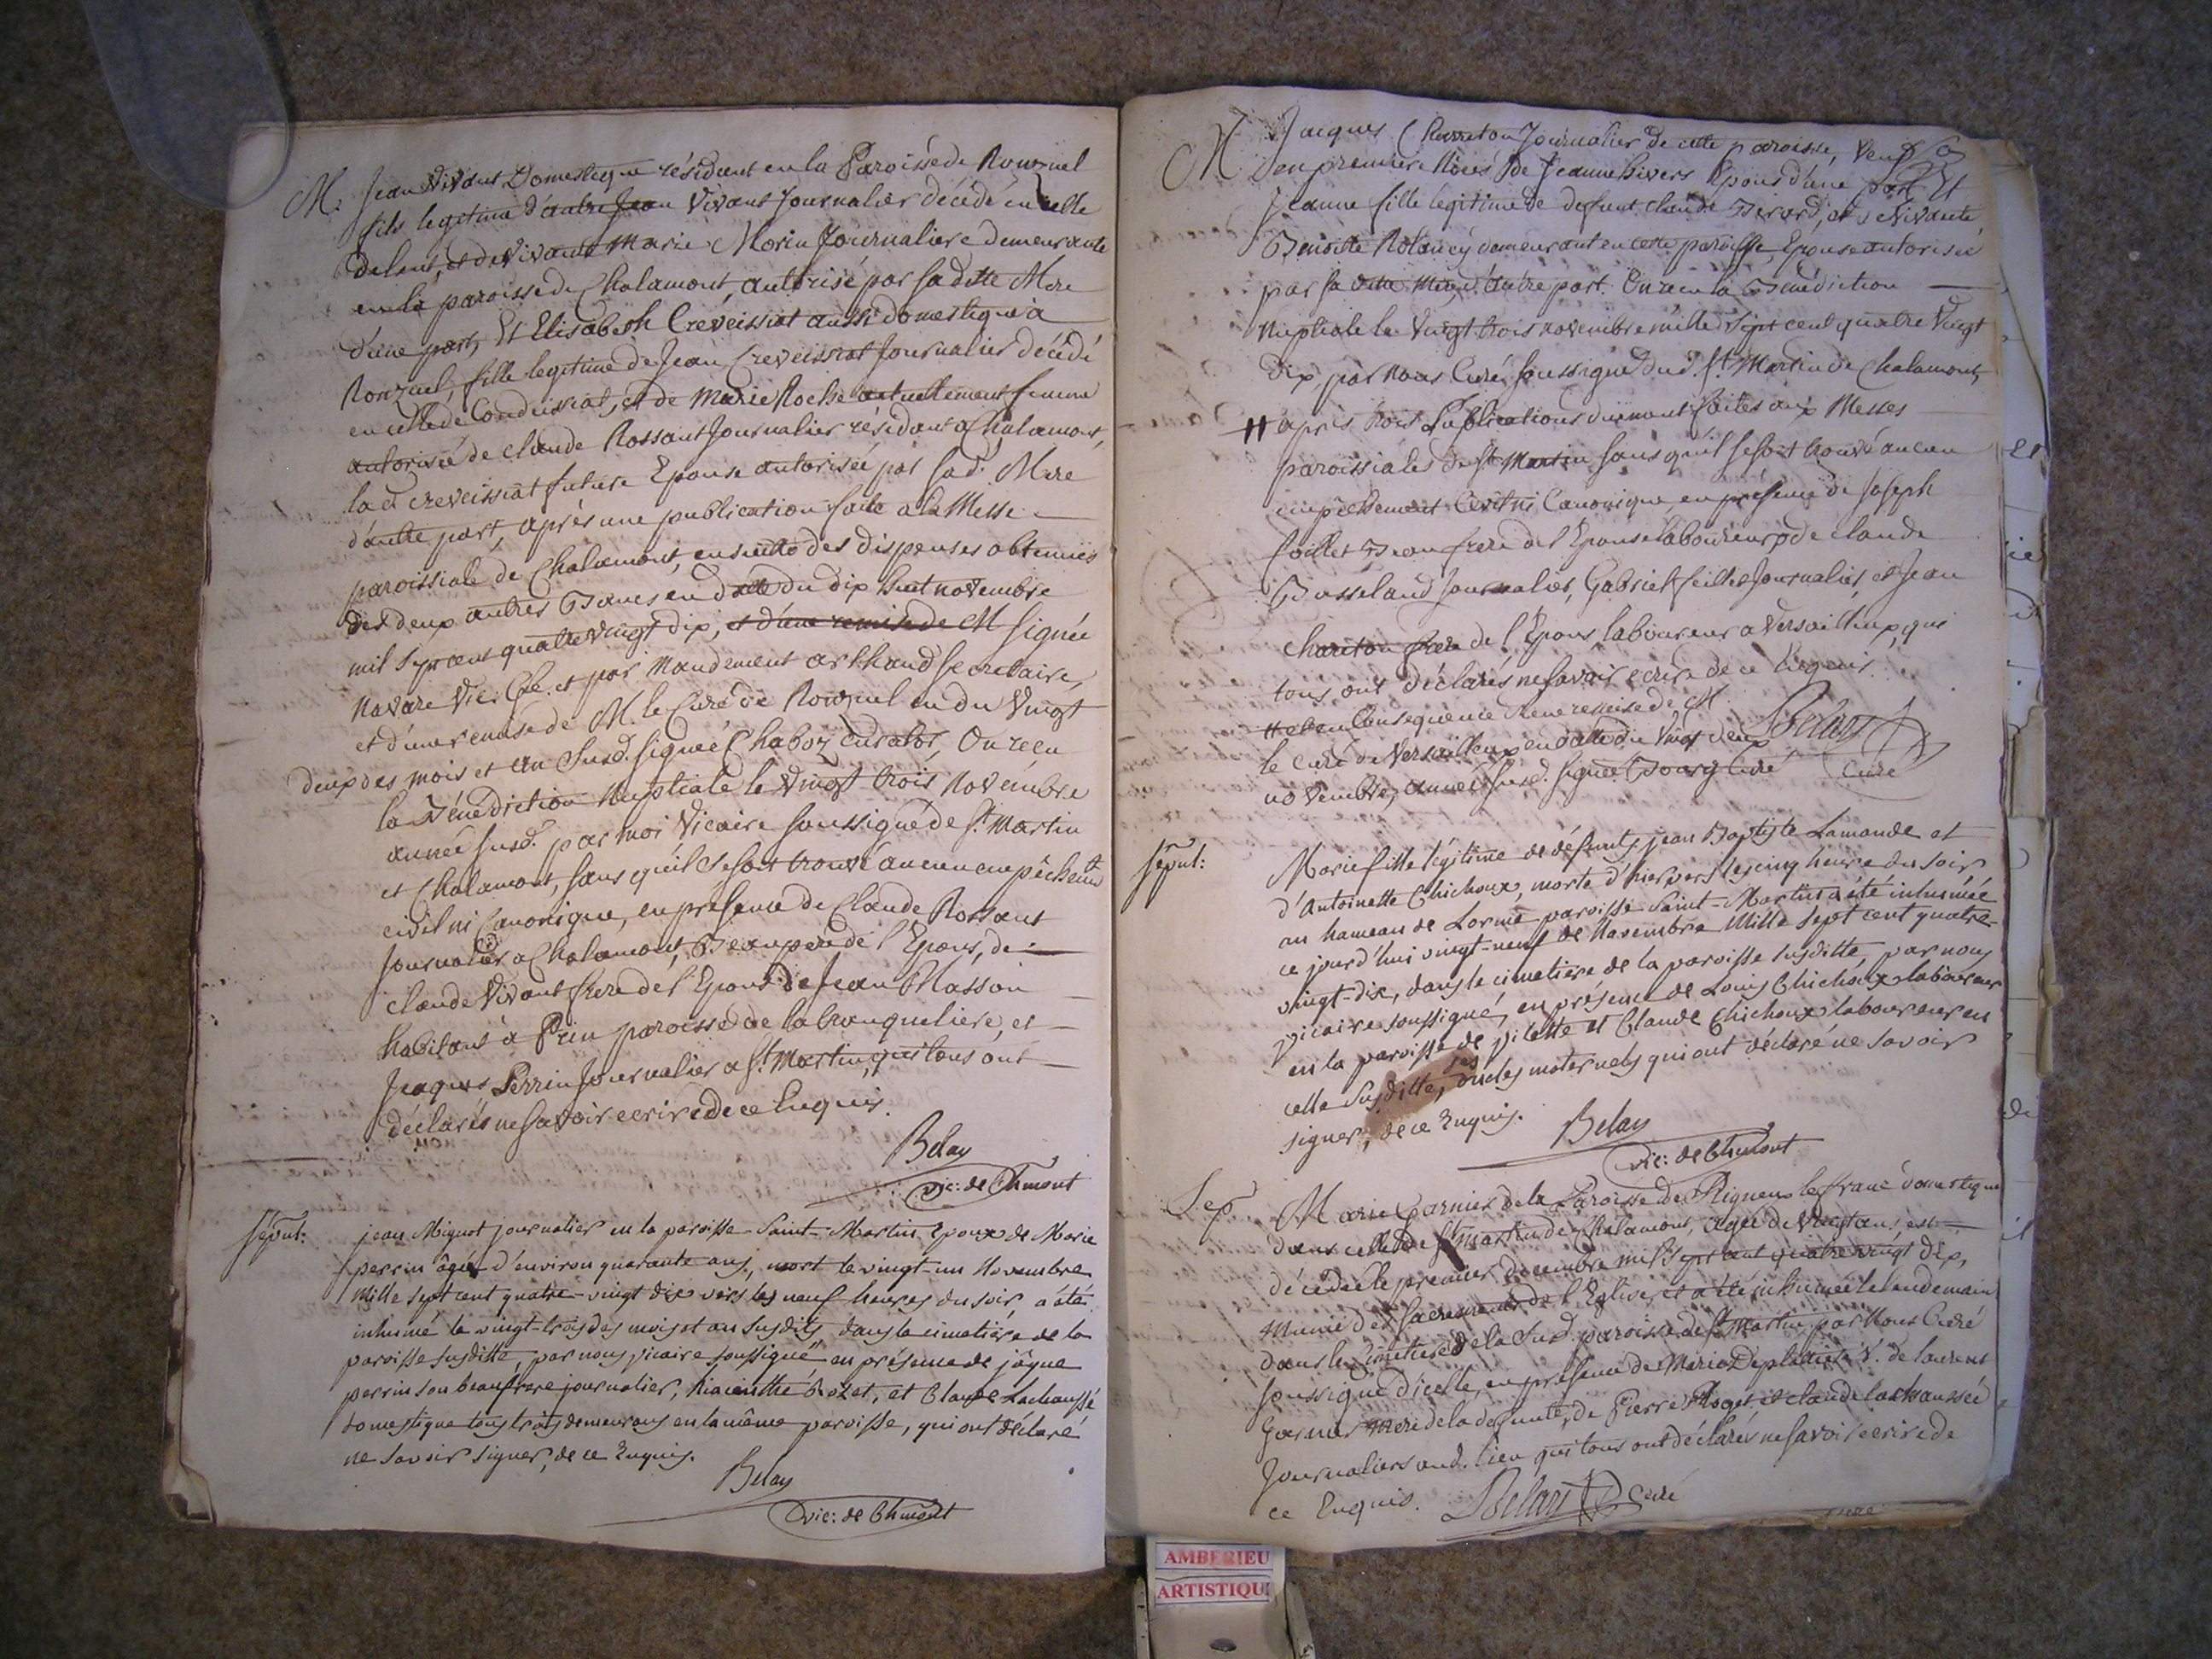 M. Jean Vivant Domestique résident en la Paroisse de Ronzuel
fils legitime d'autre Jean Vivant Journalier décédé en celle
de lent, et de vivante Marie Morin Journaliere demeurante
en la paroisse de Chalamont, autorisé par sa ditte Mere
d'une part, Et Elisabeth Creveissiat aussi domestique à
Ronzuel, fille legitime de Jean Creveissiat Journalier décédé
en celle de Condeissiat, et de Marie Roche actuellement femme
autorisée de Claude Rossant Journalier résidant a Chalamont,
la d. Creveissiat future Epouse autorisée par sad. Mere
d'autre part, après une publication faite a la Messe
paroissiale de Chalamont, ensuitte des dispenses obtenues
des deux autres Bancs en datte du dix huit novembre
mil sept cent quatre vingt dix, et d'une remise de M signée
Navare Vic. Gle. et par Mandement arthaud Secretaire,
et d'une remise de M. le Curé de Ronzuel en du Vingt
deux des mois et an susd. signée Chaboz curator, On recu
la Bénédiction Nuptiale le Vingt trois Novembre
année susd. par moi Vicaire soussigné de St. Martin
et Chalamont, sans qu'il se soit trouvé aucun empêchemt
civil ni Canonique, en présence de Claude Rossant
Journalier a Chalamont, Beaupere de l'Epoux, de
Claude Vivant frere de l'Epoux de Jean Masson
habitant à Prin paroisse de la tranqueliere, et
Jaques Perrin Journalier a St. Martin, qui tous ont
déclarés ne savoir ecrire de ce Enquis.
Belay
vic: de Chmont
sepul: jean Mignot journalier en la paroisse Saint-Martin Epoux de Marie
perrin âgé d'environ quarante ans, mort le vingt-un Novembre
Mille sept cent quatre-vingt dix vers les neuf heures du soir, a été
inhumé le vingt-trois des mois et an susdits, dans le cimetière de la
paroisse susditte, par nous vicaire soussigné en présence de jâque
perrin son beaufrere journalier, hiacinthe rozet, et Claude Lachaussé
domestique tous trois demeurans en la même paroisse, qui ont déclaré
ne savoir signer, de ce Enquis.
Belay
vic: de Chmont
M. Jacques Charreton Journalier de cette paroisse, Veuf
en premiere Noces de Jeanne hivers Epoux d'une part Et
Jeanne fille legitime de defunt Claude Berard, et de Vivante
Benoitte Rolancy demeurant en cette paroisse, Epouse autorisée
par sa ditte Mere d'autre part. On recu la Bénédiction
Nuptiale le Vingt trois novembre mille sept cent quatre Vingt
dix, par Nous Curé soussigné dud. St. Martin de Chalamont,
# après trois Publications duement faites aux Messes
paroissiales de St. Martin sans qu'il se soit trouvé aucun
empêchement Civil ni Canonique, en présence de Joseph
foillet Beaufrere de l'Epouse laboureur, de Claude
Basseland Journalier, Gabriel feillet Journalier, et Jean
Chareton frere de l'Epoux laboureur a Versailleux, qui
tous ont déclarés ne savoir ecrire de ce Enquis.
# et en Consequence d'une remise de M.
le Curé de Versailleux en datte du Vingt deux
novembre, année susd. signée Bourg Curé
Belay
Curé
sepul: Marie fille légitime de défunts jean Baptiste Lamande et
d'Antoinette Chichoux, morte d'hier vers les cinq heure du soir
au hameau de Lorme paroisse Saint-Martin a été inhumée
ce jourd'hui vingt-neuf de Novembre Mille sept cent quatre-
vingt-dix, dans le cimetiere de la paroisse susditte, par nous
vicaire soussigné, en présence de Louis Chichoux laboureur
en la paroisse de vilette et Claude Chichoux laboureur en
celle susditte, ses oncles maternels qui ont déclaré ne savoir
signer, de ce Enquis.
Belay
vic: de Chmont
Sep Marie Garnier de la Paroisse de Rigneux le franc domestique
dans celle de St. Martin de Chalamont, agée de Vingt ans est
décédée le premier Decembre mil sept cent quatre vingt dix,
munie des sacrements de l'Eglise, et a été inhumée le lendemain
dans le Cimetiere de la susd. paroisse de St. Martin par Nous Curé
soussigné d'icelle, en présence de Marie Deplatiere V. de laurent
Garnier Mere de la defunte, de Pierre Roget et Claude la chaussée
Journaliers aud. lieu qui tous ont déclarés ne savoir ecrire de
ce Enquis. Belay Curé
AMBERIEU
ARTISTIQU